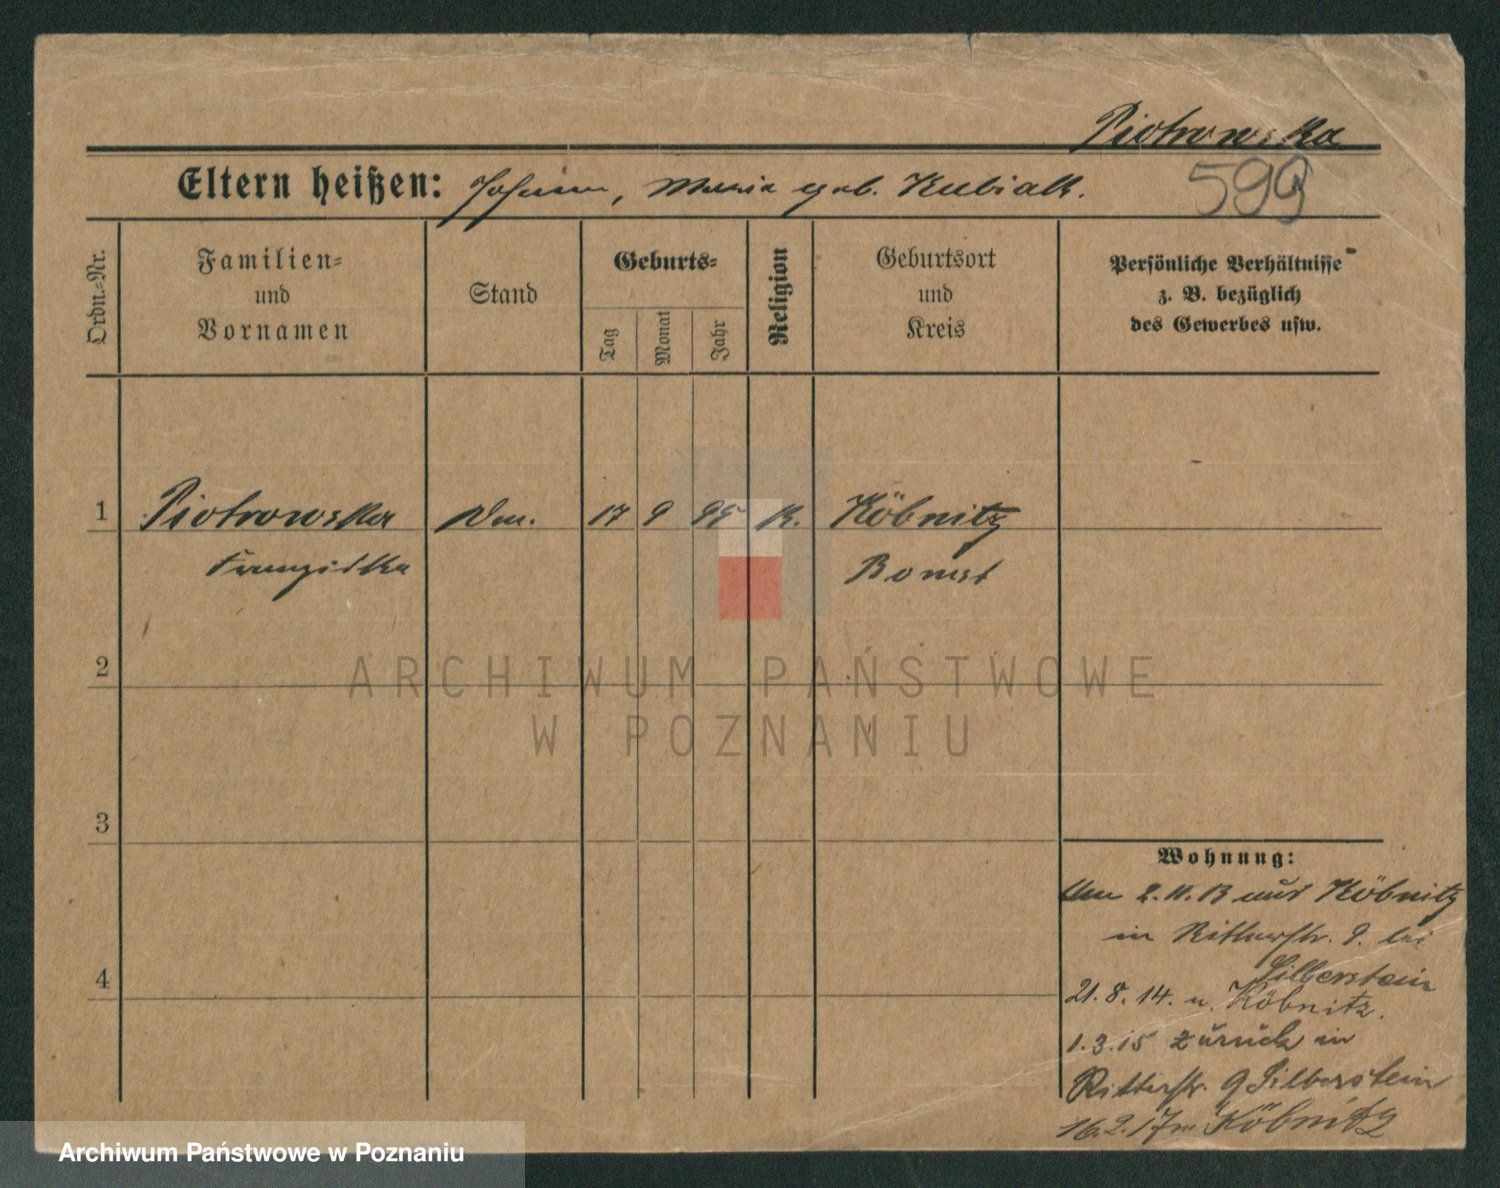 Piotrowska
Eltern heißen: Johann, Maria geb. Kubiak.
599
Ordn.-Nr.
Familien-
und
Vornamen
Stand
Geburts-
Tag
Monat
Jahr
Religion
Geburtsort
und
Kreis
Persönliche Verhältnisse
z. B. bezüglich
des Gewerbes usw.
1 Piotrowska 17 9 95 K. Köbnitz
Franziska Bomst
2
ARCHIWUM PAŃSTWOWE
W POZNANIU
3
Wohnung:
2.11.13 aus Köbnitz
in Ritterstr. 9. bei
Silberstein
4
21.8.14. n. Köbnitz.
1.3.15 zurück in
Ritterstr. 9 Silberstein
16.2.17 n Köbnitz
Archiwum Państwowe w Poznaniu